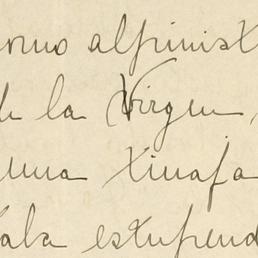 como alpinist
de la Virgen,
una tinaja
taba estupend